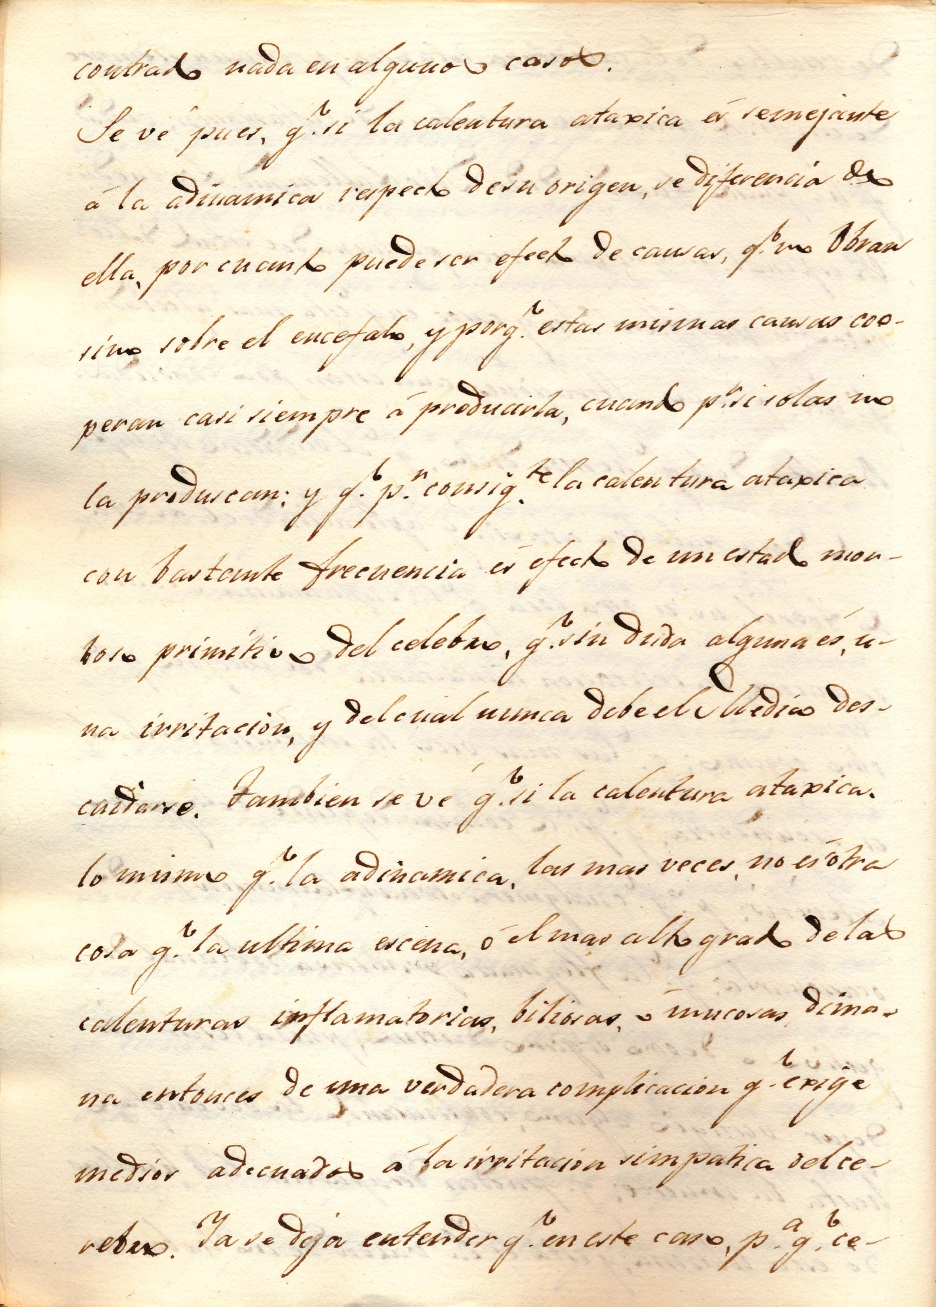 contrado nada en algunos casos.
Se vé pues, q.e si la calentura ataxica és semejante
á la adinamica respecto desu origen, se diferencia de
ella, por cuanto puede ser efecto de causas, q.e no Obran
sino sobre el encefalo, y porq.e estas mismas causas coo-
peran casi siempre á producirla, cuando p.r si solas no
la produscan; y q.e p.r consig.te la calentura ataxica
con bastante frecuencia és efecto de un estado mor-
boso primitivo del celebro, q.e sin duda alguna és, u-
na irritacion, y del cual nunca debe el Medico des-
cuidarse. Tambien se vé q.e si la calentura ataxica.
lo mismo q.e la adinamica, las mas veces, no és otra
cosa q.e la ultima escena, ó el mas alto grado de las
calenturas inflamatorias, biliosas, ó mucosas, dima-
na entonces de una verdadera complicacion q.e exige
medios adecuados á la irritacion simpatica del ce-
rebro. Ya se deja entender q.e en este caso, p.a q.e ce-